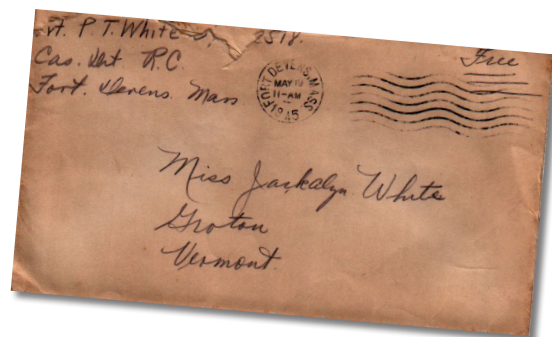 P. T. White 2518.
Cas. Det. R.C.
Fort. Devens. Mass
Free
FORT DEVENS, MASS
MAY 19
11-AM
1945
Miss Jackalyn White
Groton
Vermont.